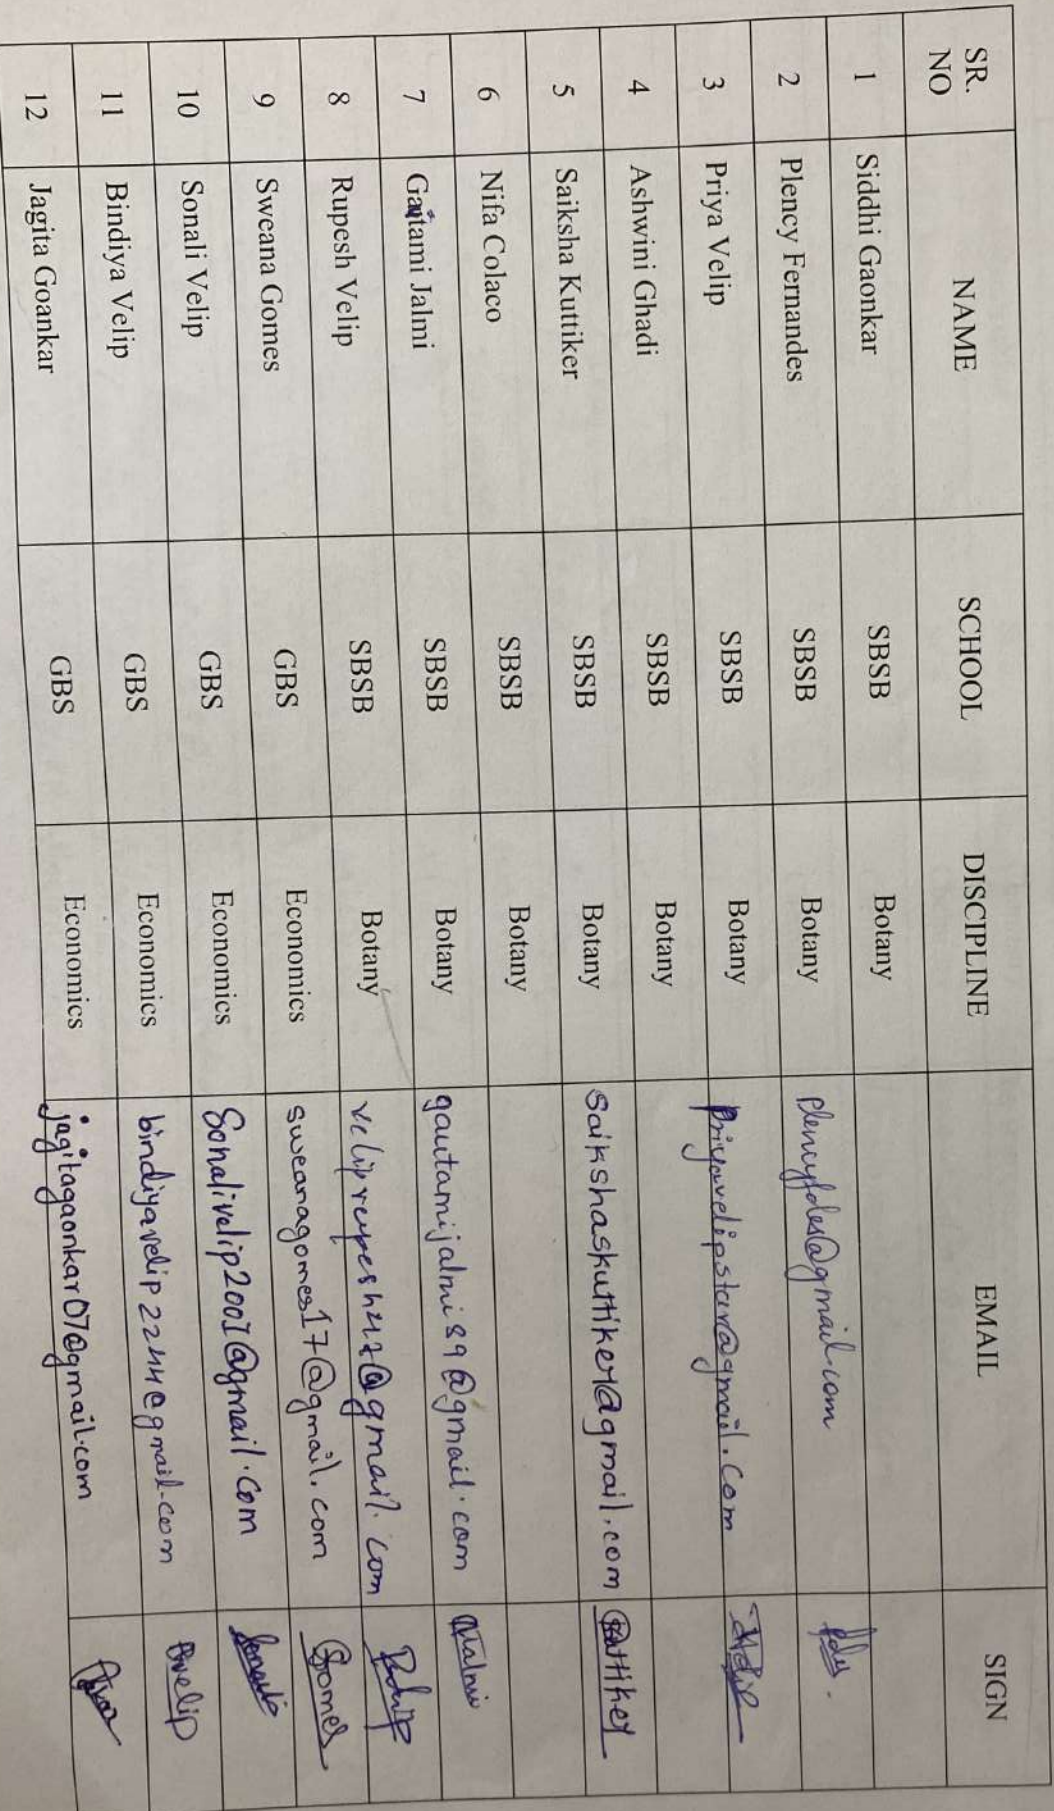 SR. NO NAME SCHOOL DISCIPLINE EMAIL SIGN
1 Siddhi Gaonkar SBSB Botany
2 Plency Fernandes SBSB Botany plencyfdes@gmail.com
3 Priya Velip SBSB Botany priyavelipstar@gmail.com
4 Ashwini Ghadi SBSB Botany
5 Saiksha Kuttiker SBSB Botany saikshaskuttiker@gmail.com Kuttiker
6 Nifa Colaco SBSB Botany
7 Gautami Jalmi SBSB Botany gautamijalmi89@gmail.com Jalmi
8 Rupesh Velip SBSB Botany veliprupesh47@gmail.com
9 Sweana Gomes GBS Economics sweanagomes17@gmail.com Gomes
10 Sonali Velip GBS Economics Sonalivelip2001@gmail.com
11 Bindiya Velip GBS Economics bindiyavelip2244@gmail.com Bvelip
12 Jagita Goankar GBS Economics jagitagaonkar07@gmail.com